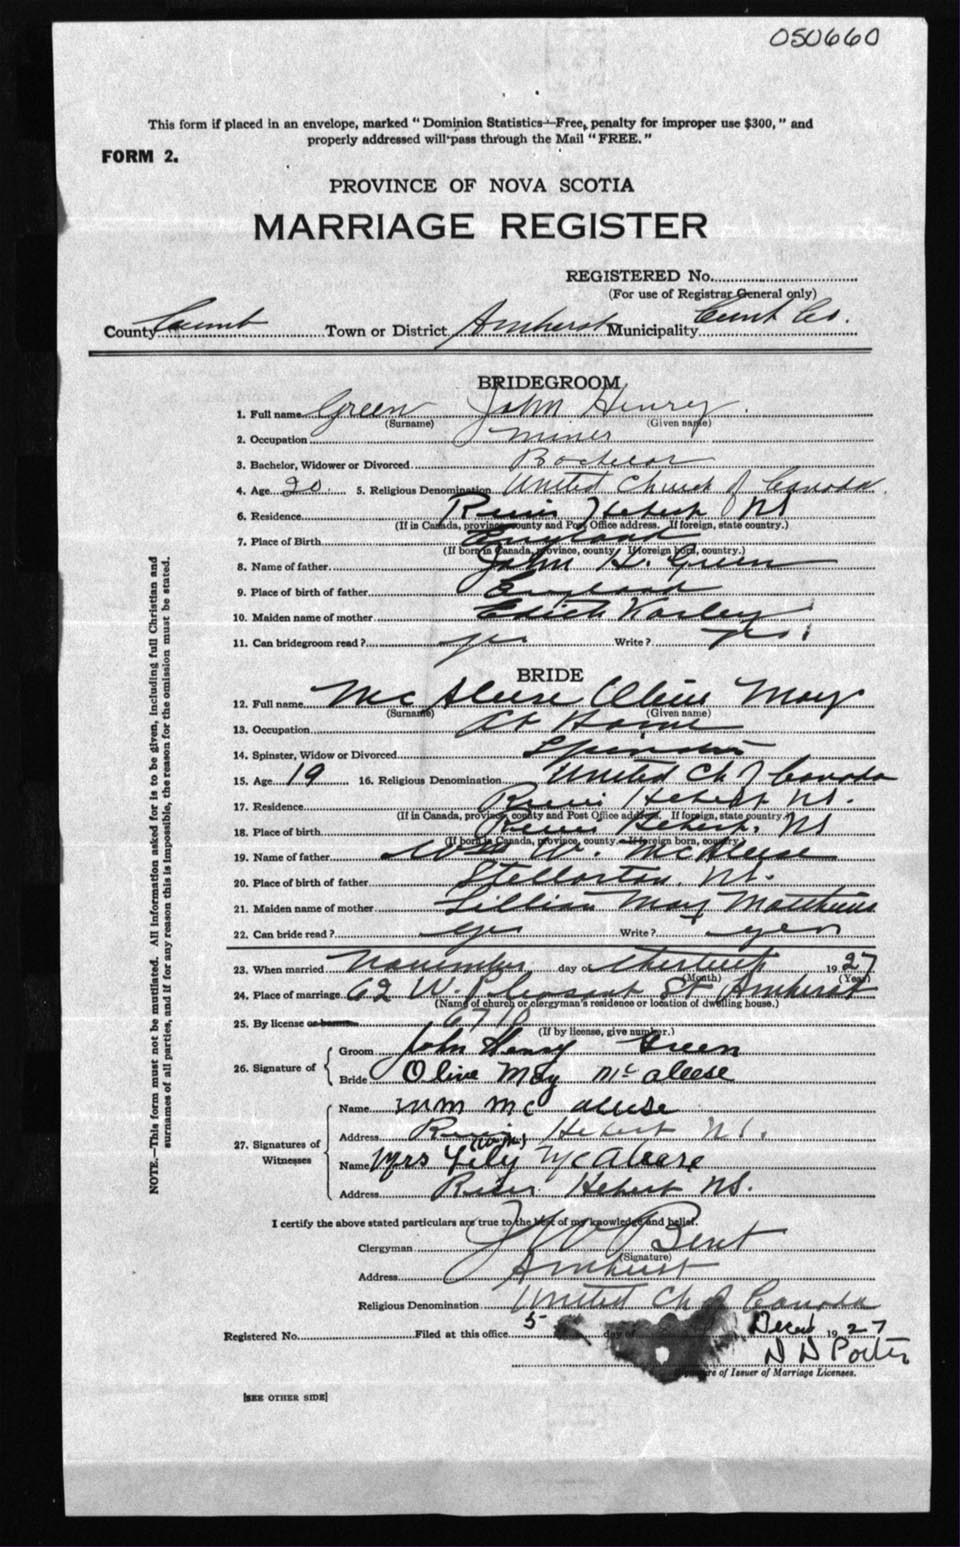 050660
This form if placed in an envelope, marked "Dominion Statistics—Free, penalty for improper use $300," and
properly addressed will pass through the Mail "FREE."
FORM 2.
PROVINCE OF NOVA SCOTIA
MARRIAGE REGISTER
REGISTERED No.
(For use of Registrar General only)
County Cumb Town or District Amherst Municipality Cum Co.
BRIDEGROOM
1. Full name Green John Henry
(Surname) (Given name)
2. Occupation Miner
3. Bachelor, Widower or Divorced Bachelor
4. Age 20 5. Religious Denomination United Church of Canada
6. Residence River Hebert NS
(If in Canada, province, county and Post Office address. If foreign, state country.)
7. Place of Birth England
(If born in Canada, province, county. If foreign born, country.)
8. Name of father John H. Green
9. Place of birth of father England
10. Maiden name of mother Edith Varley
11. Can bridegroom read? yes Write? yes
BRIDE
12. Full name McAleese Olive May
(Surname) (Given name)
13. Occupation At Home
14. Spinster, Widow or Divorced Spinster
15. Age 19 16. Religious Denomination United Ch of Canada
17. Residence River Hebert NS.
(If in Canada, province, county and Post Office address. If foreign, state country.)
18. Place of birth River Hebert, NS
(If born in Canada, province, county. If foreign born, country.)
19. Name of father Wm W. McAleese
20. Place of birth of father Stellarton, NS.
21. Maiden name of mother Lillian May Matthews
22. Can bride read? yes Write? yes
23. When married November day of thirtieth 1927
(Month) (Year)
24. Place of marriage 62 W. Pleasant St Amherst
(Name of church or clergyman's residence or location of dwelling house.)
25. By license or banns
(If by license, give number.)
26. Signature of
Groom John Henry Green
Bride Olive May McAleese
27. Signatures of Witnesses
Name Wm McAleese
Address River Hebert NS.
(Wm)
Name Mrs Lily McAleese
Address River Hebert NS.
I certify the above stated particulars are true to the best of my knowledge and belief.
Clergyman J W Bent
(Signature)
Address Amherst
Religious Denomination United Ch of Canada
Registered No. Filed at this office 5 day of Decr 1927
D D Porter
Signature of Issuer of Marriage Licenses.
[SEE OTHER SIDE]
NOTE.—This form must not be mutilated. All information asked for is to be given, including full Christian and
surnames of all parties, and if for any reason this is impossible, the reason for the omission must be stated.